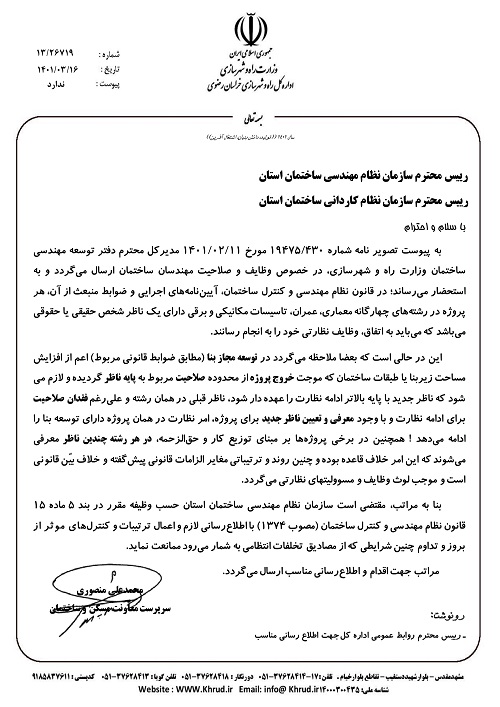 جمهوری اسلامی ایران
وزارت راه و شهرسازی
اداره کل راه و شهرسازی خراسان رضوی
شماره : ۱۳/۲۶۷۱۹
تاریخ : ۱۴۰۱/۰۳/۱۶
پیوست : ندارد
بسمه تعالی
رییس محترم سازمان نظام مهندسی ساختمان استان
رییس محترم سازمان نظام کاردانی ساختمان استان
با سلام و احترام
به پیوست تصویر نامه شماره ۱۹۴۷۵/۴۳۰ مورخ ۱۴۰۱/۰۲/۱۱ مدیرکل محترم دفتر توسعه مهندسی
ساختمان وزارت راه و شهرسازی، در خصوص وظایف و صلاحیت مهندسان ساختمان ارسال می‌گردد و به
استحضار می‌رساند؛ در قانون نظام مهندسی و کنترل ساختمان، آیین‌نامه‌های اجرایی و ضوابط منبعث از آن، هر
پروژه در رشته‌های چهارگانه معماری، عمران، تاسیسات مکانیکی و برقی دارای یک ناظر شخص حقیقی یا حقوقی
می‌باشد که می‌باید به اتفاق، وظایف نظارتی خود را به انجام رسانند.
این در حالی است که بعضا ملاحظه می‌گردد در توسعه مجاز بنا (مطابق ضوابط قانونی مربوط) اعم از افزایش
مساحت زیربنا یا طبقات ساختمان که موجت خروج پروژه از محدوده صلاحیت مربوط به پایه ناظر گردیده و لازم می
شود که ناظر جدید با پایه بالاتر ادامه نظارت را عهده دار شود، ناظر قبلی در همان رشته و علی‌رغم فقدان صلاحیت
برای ادامه نظارت و با وجود معرفی و تعیین ناظر جدید برای پروژه، امر نظارت در همان پروژه دارای توسعه بنا را
ادامه می‌دهد ! همچنین در برخی پروژه‌ها بر مبنای توزیع کار و حق‌الزحمه، در هر رشته چندین ناظر معرفی
می‌شوند که این امر خلاف قاعده بوده و چنین روند و ترتیباتی مغایر الزامات قانونی پیش‌گفته و خلاف بیّن قانونی
است و موجب لوث وظایف و مسوولیتهای نظارتی می‌گردد.
بنا به مراتب، مقتضی است سازمان نظام مهندسی ساختمان استان حسب وظیفه مقرر در بند ۵ ماده ۱۵
قانون نظام مهندسی و کنترل ساختمان (مصوب ۱۳۷۴) با اطلاع‌رسانی لازم و اعمال ترتیبات و کنترل‌های موثر از
بروز و تداوم چنین شرایطی که از مصادیق تخلفات انتظامی به شمار می‌رود ممانعت نماید.
مراتب جهت اقدام و اطلاع‌رسانی مناسب ارسال می‌گردد.
محمدعلی منصوری
سرپرست معاونت مسکن و ساختمان
رونوشت:
ـ رییس محترم روابط عمومی اداره کل جهت اطلاع رسانی مناسب
مشهدمقدس - بلوارشهیددستغیب - تقاطع بلوارخیام . تلفن: ۱۷-۳۷۶۲۸۴۱۴-۰۵۱ دورنگار : ۳۷۶۲۸۴۱۸-۰۵۱ تلفن گویا : ۳۷۶۲۸۴۱۲-۰۵۱ کدپستی : ۹۱۸۵۸۳۷۶۱۱
شناسه ملی: ۱۴۰۰۰۳۰۰۴۳۵ Website : WWW.Khrud.ir Email: info@ Khrud.ir